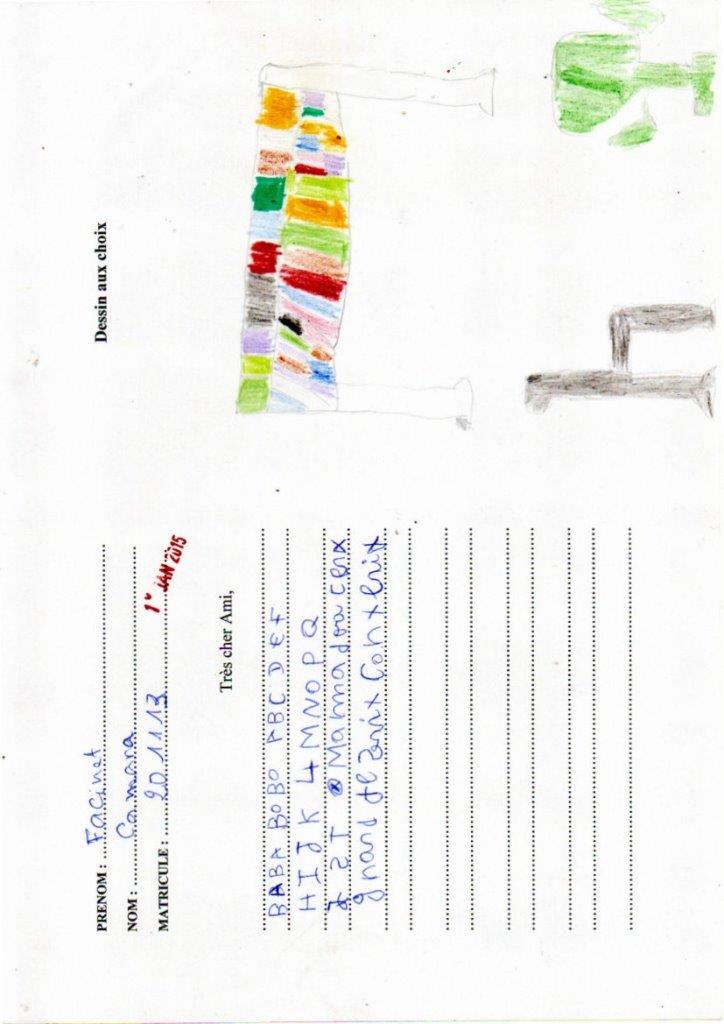 PRENOM : Facinet
NOM : Camara
MATRICULE : 201113
1er JAN 2015
Très cher Ami,
BABA BOBO ABC DEF
HIJK 4 MNOPQ
Mamadou
grand
Dessin aux choix